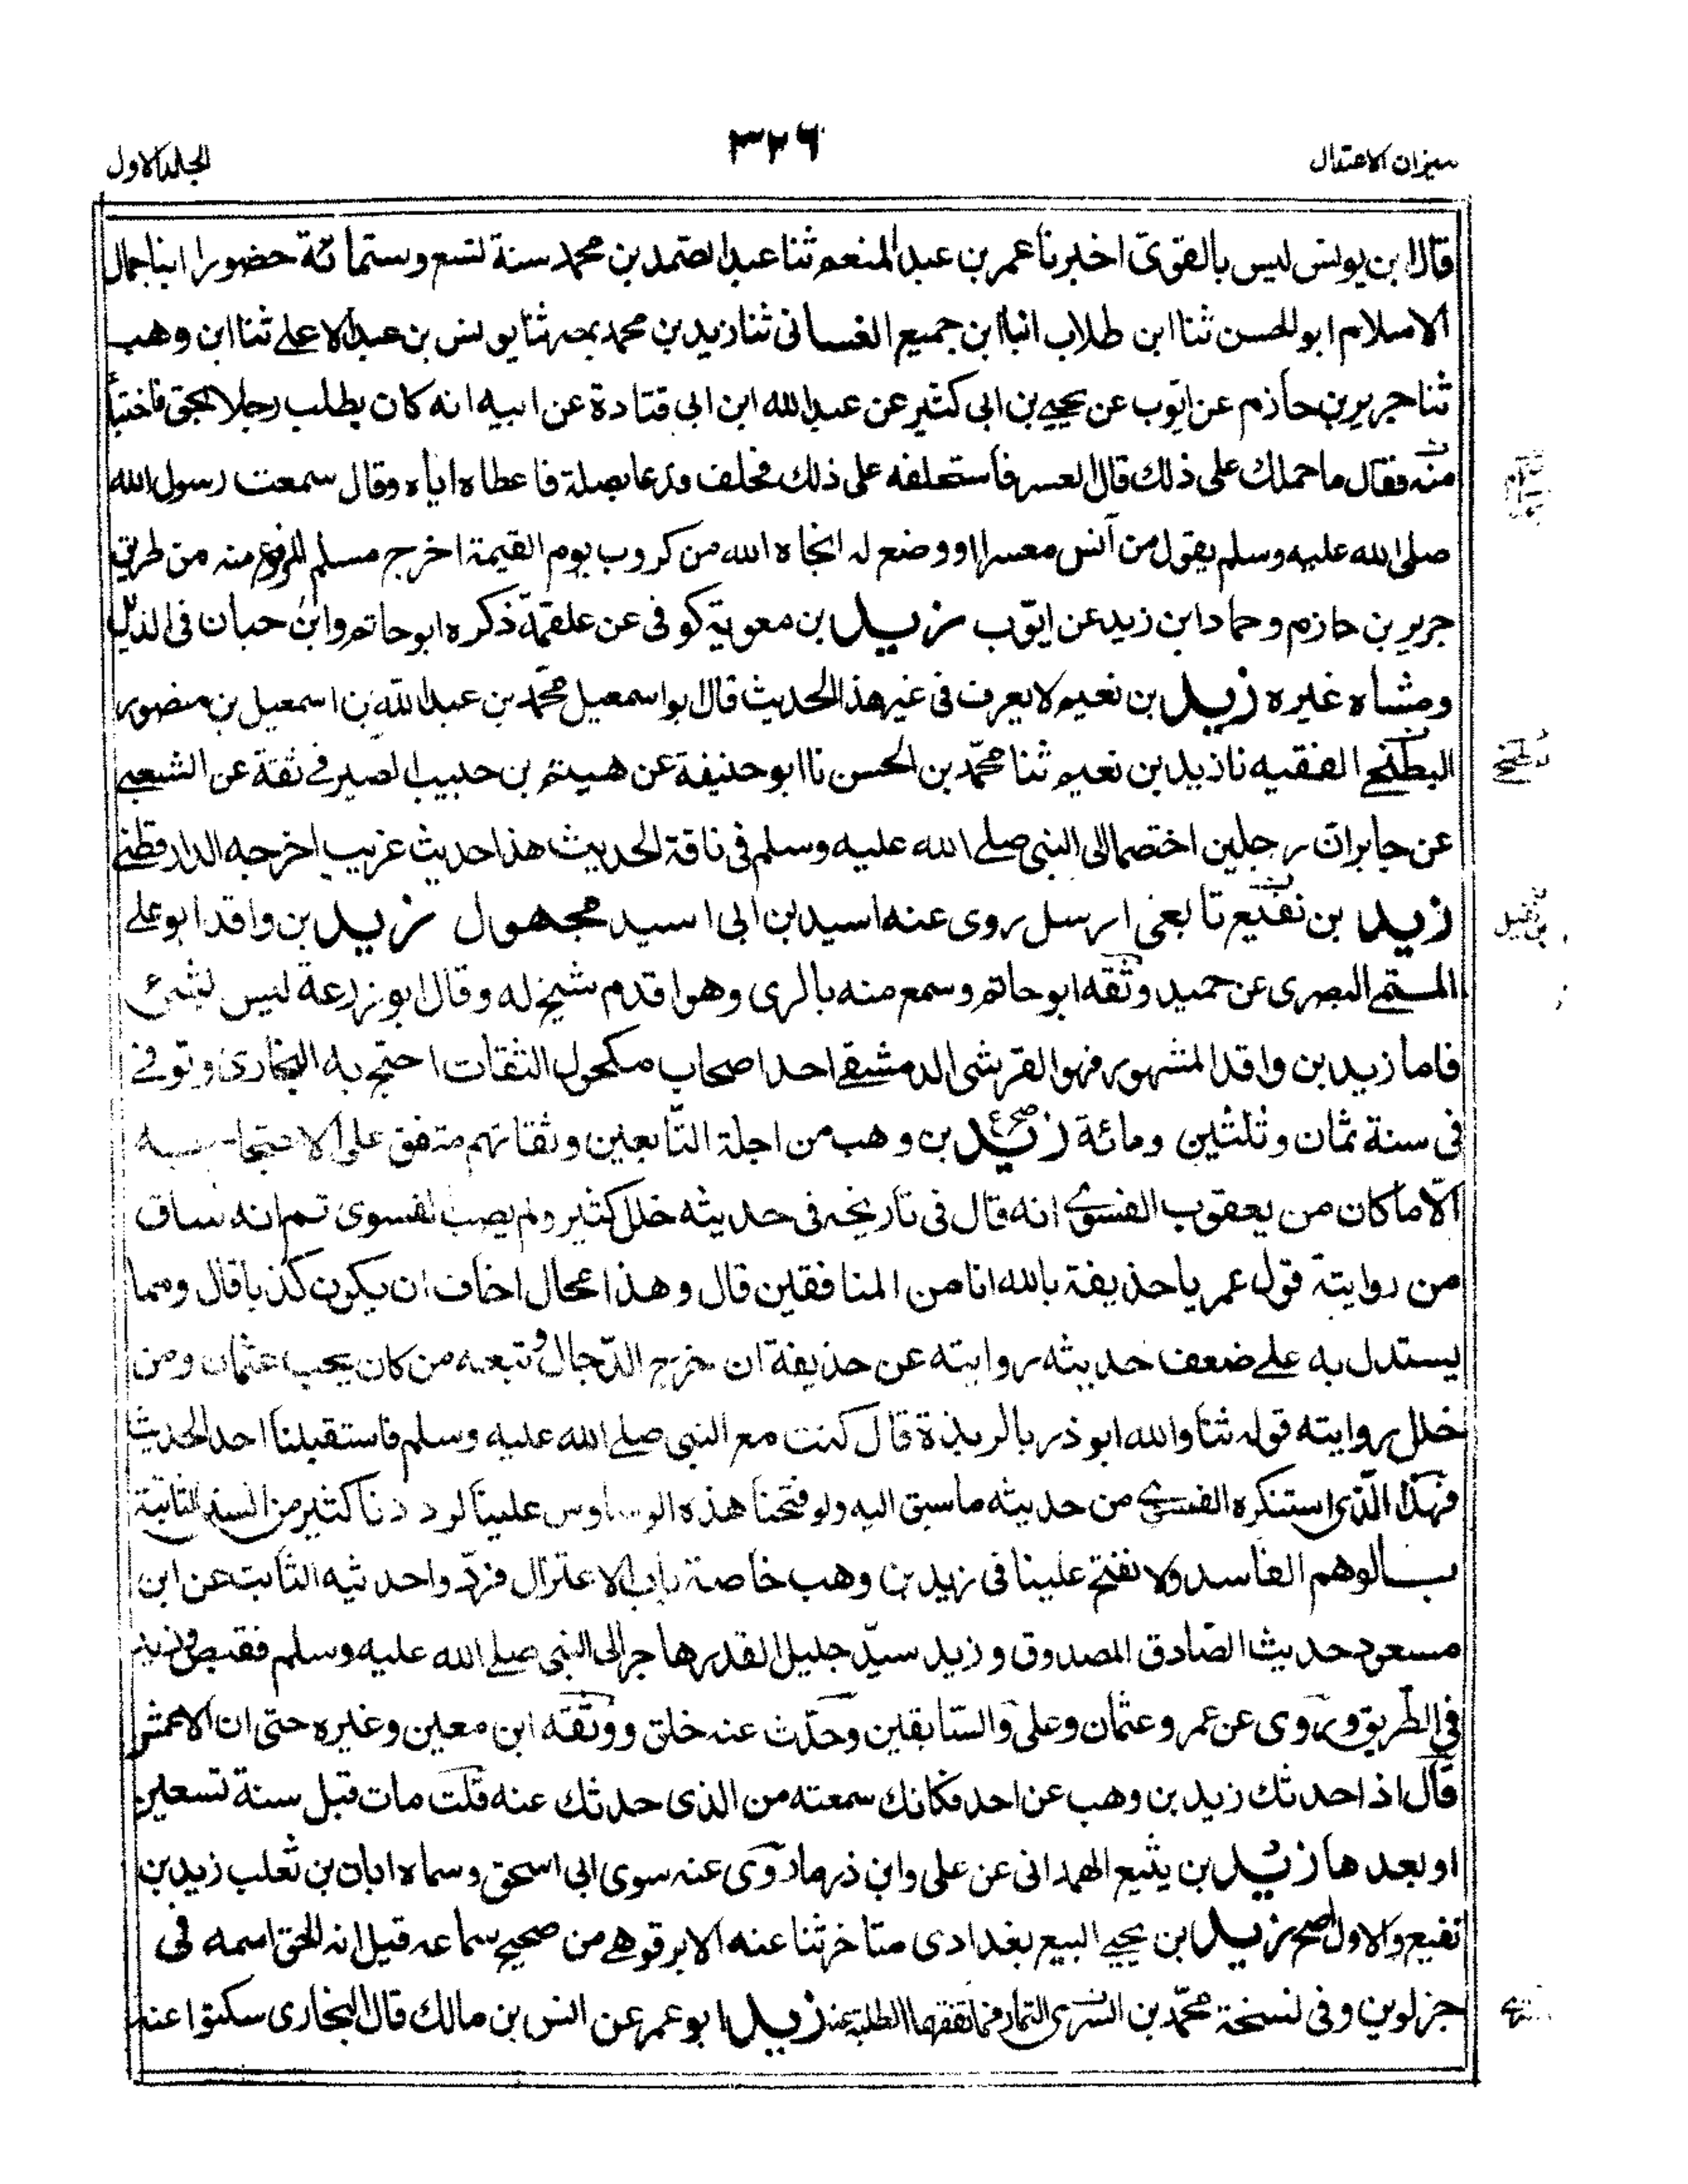 ميزان الاعتدال
٣٢٦
الجلد الاول
قال ابن يونس ليس بالقوىّ اخبرنا عمر بن عبد المنعم ثنا عبد الصمد بن محمد سنة تسع وستمائة حضورا انبا جمال
الاسلام ابو الحسن ثنا ابن طلاب انبا ابن جميع الغسانى ثنا زيد بن محمد بمصر ثنا يونس بن عبد الاعلى ثنا ابن وهب
ثنا جرير بن حازم عن ايّوب عن يحيى بن ابى كثير عن عبد الله ابن ابى قتادة عن ابيه انه كان يطلب رجلا بحق فاختبأ
منه فقال ما حملك على ذلك قال العسر فاستحلفه على ذلك فحلف فدعا بصلة فاعطاه اياه وقال سمعت رسول الله
صلى الله عليه وسلم يقول من آنس معسرا او وضع له انجاه الله من كروب يوم القيمة اخرج مسلم المرفوع منه من طريق
جرير بن حازم وحماد ابن زيد عن ايّوب زيد بن معوية كوفى عن علقمة ذكره ابو حاتم وابن حبان فى الذيل
ومشاه غيره زيد بن نعيم لا يعرف فى غير هذا الحديث قال ابو اسمعيل محمّد بن عبد الله بن اسمعيل بن منصور
البطيخى الفقيه نا زيد بن نعيم ثنا محمّد بن الحسن نا ابو حنيفة عن هيثم بن حبيب الصيرفى ثقة عن الشعبى
عن جابر ان رجلين اختصما الى النبى صلى الله عليه وسلم فى ناقة الحديث هذا حديث غريب اخرجه الدارقطنى
زيد بن نفيع تابعى ارسل روى عنه اسيد بن ابى اسيد مجهول زيد بن واقد ابو على
المستملى البصرى عن حميد وثقه ابو حاتم وسمع منه بالرى وهو اقدم شيخ له وقال ابو زرعة ليس بشئ
فاما زيد بن واقد المشهور فهو القرشى الدمشقى احد اصحاب مكحول الثقات احتج به البخارى وتوفى
فى سنة ثمان وثلثين ومائة زيد بن وهب من اجلة التّابعين وثقاتهم متفق على الاحتجاج به
الّا ما كان من يعقوب الفسوى انه قال فى تاريخه فى حديثه خلل كثير ولم يصب الفسوى ثم انه ساق
من روايته قول عمر يا حذيفة بالله انا من المنافقين قال وهذا محال اخاف ان يكون كذبا قال ومما
يستدل به على ضعف حديثه روايته عن حذيفة ان خرج الدّجال تبعه من كان يحب عثمان ومن
خلل روايته قوله ثنا والله ابو ذر بالربذة قال كنت مع النبى صلى الله عليه وسلم فاستقبلنا احد الحديث
فهذا الّذى استنكره الفسوى من حديثه ما سبق اليه ولو فتحنا هذه الوساوس علينا لرددنا كثير من السنن الثابتة
بالوهم الفاسد ولا نفتح علينا فى زيد بن وهب خاصة باب الاعتزال فردّوا حديثه الثابت عن ابن
مسعود حديث الصّادق المصدوق وزيد سيّد جليل القدر هاجر الى النبى صلى الله عليه وسلم فقبض وزيد
فى الطّريق وروى عن عمر وعثمان وعلى والسّابقين وحدّث عنه خلق ووثقه ابن معين وغيره حتى ان الاعمش
قال اذا حدثك زيد بن وهب عن احد فكانك سمعته من الذى حدثك عنه قلت مات قبل سنة تسعين
او بعدها زيد بن يثيع الهمدانى عن على وابى ذر ما روى عنه سوى ابى اسحق وسماه ابان بن ثعلب زيد بن
نفيع والاول اصح زيد ابن يحيى البيع بغدادى متاخر ثنا عنه الابرقوهى من صحيح سماعه قيل انه الحق اسمه فى
جز لوين وفى نسخة محمّد بن السرى التمار فما تفقهها الطلبة عنه زيد ابو عمر عن انس بن مالك قال البخارى سكتوا عنه